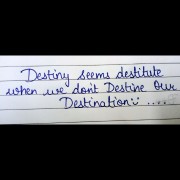 Destiny seems destitute
when we don't Destine Our
Destination :- ....